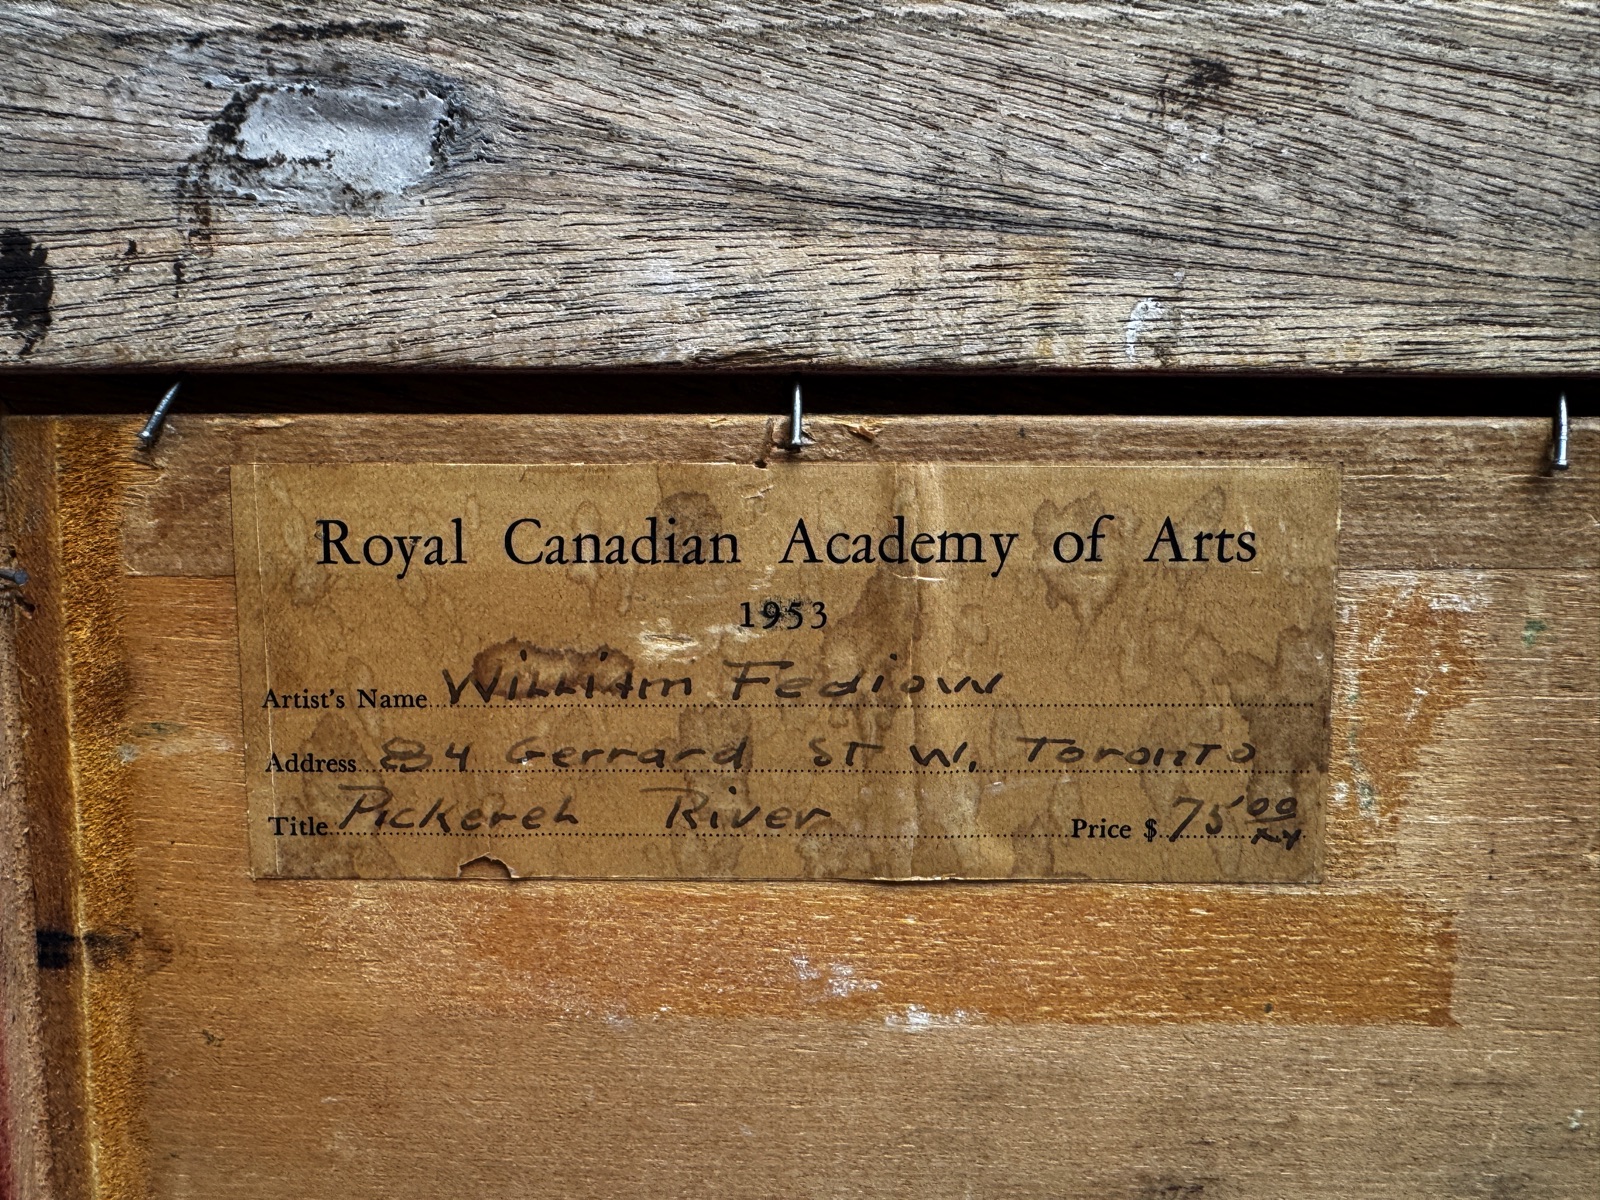 Royal Canadian Academy of Arts
1953
Artist's Name William Fediow
Address 84 Gerrard St W. Toronto
Title Pickerel River Price $ 75 00